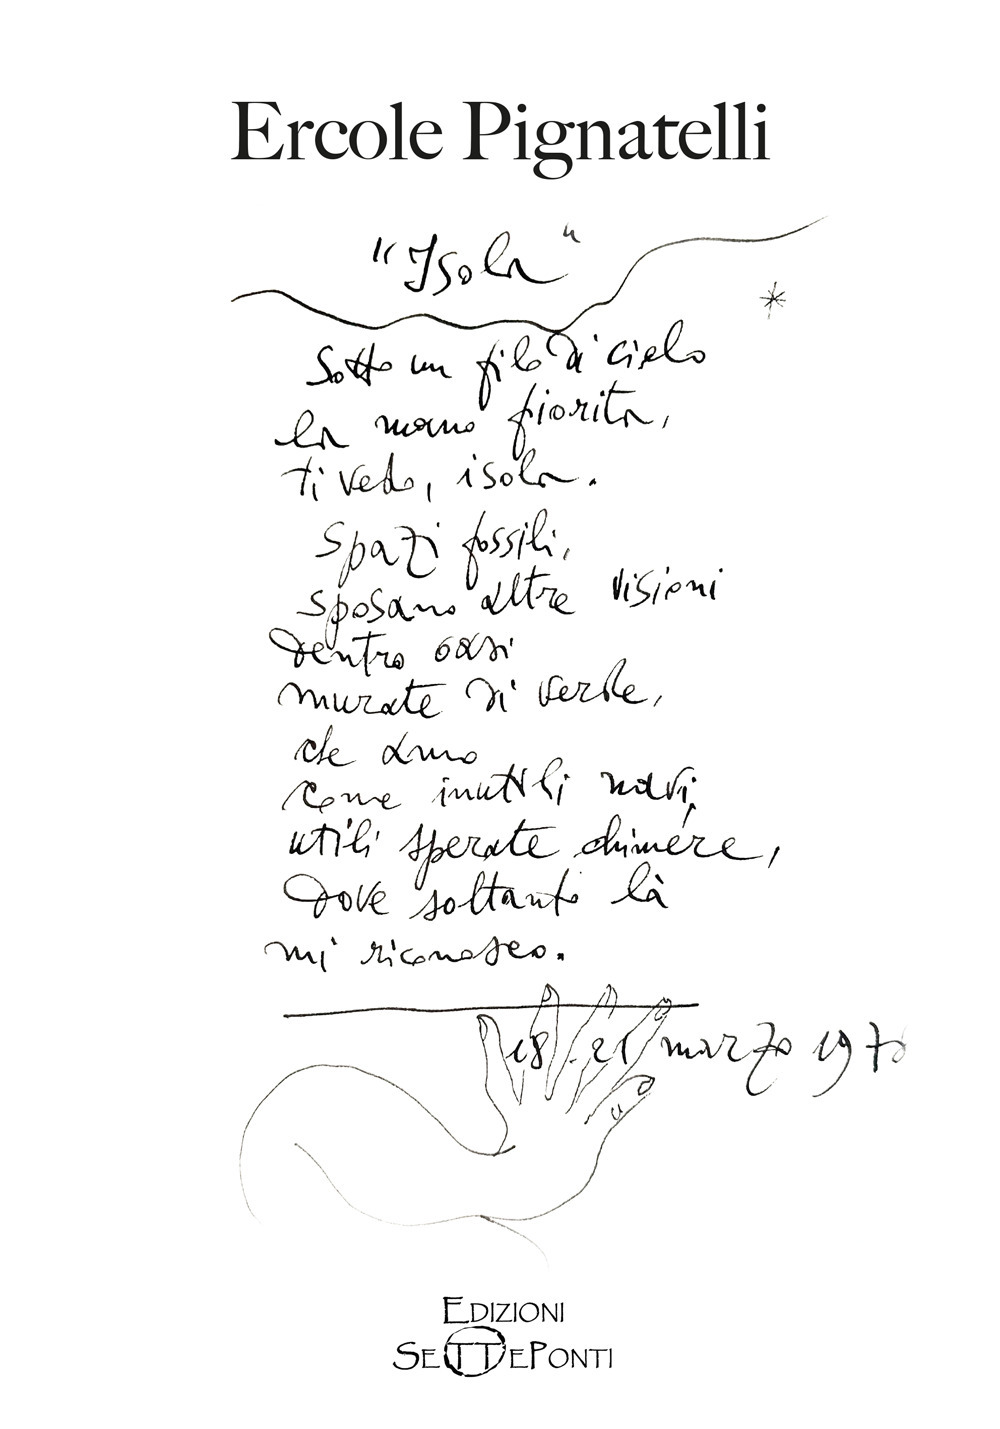 Ercole Pignatelli
"Isola"
Sotto un filo di cielo
la mano fiorita,
ti vedo, isola.
Spazi fossili,
sposano altre visioni
dentro oasi
murate di verde,
che amo
come inutili navi,
utili sperate chimere,
dove soltanto là
mi riconosco.
18.21 marzo 197
EDIZIONI
SETTEPONTI